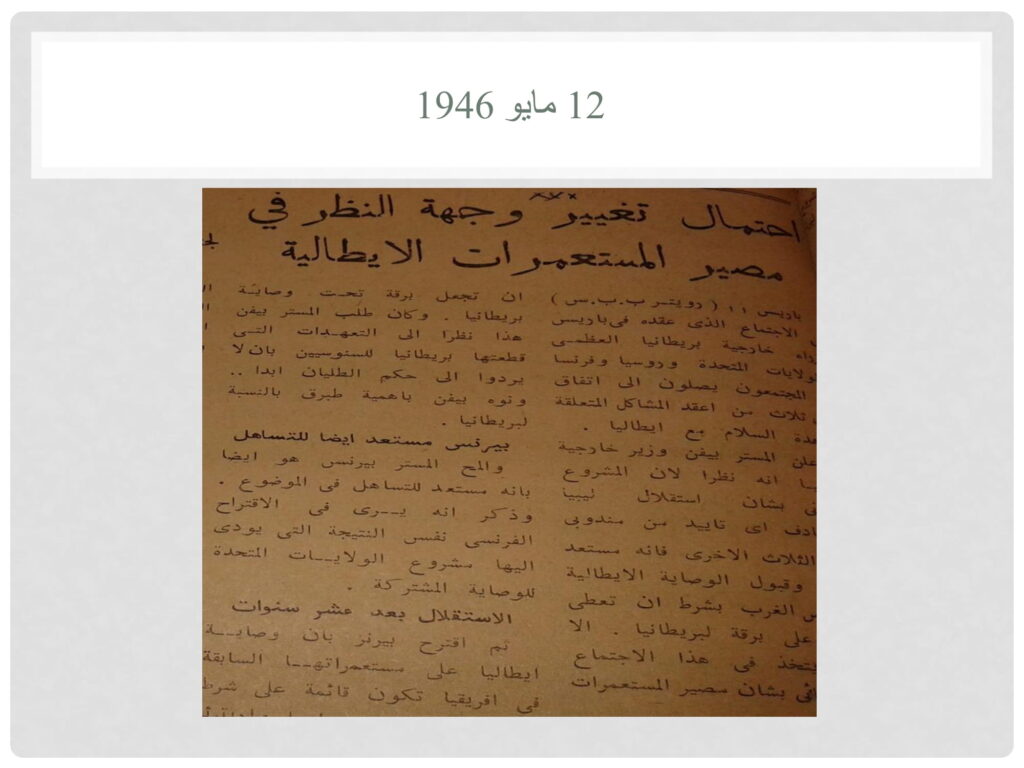 12 مايو 1946
احتمال تغيير وجهة النظر في
مصير المستعمرات الايطالية
باريس ١١ ( رويتر ب.ب.س )
الاجتماع الذى عقده فى باريس
خارجية بريطانيا العظمى
المتحدة وروسيا وفرنسا
المجتمعون يصلون الى اتفاق
ثلاث من اعقد المشاكل المتعلقة
السلام مع ايطاليا .
المستر بيفن وزير خارجية
انه نظرا لان المشروع
بشان استقلال ليبيا
اى تاييد من مندوبى
الثلاث الاخرى فانه مستعد
وقبول الوصاية الايطالية
الغرب بشرط ان تعطى
على برقة لبريطانيا . الا
يتخذ فى هذا الاجتماع
بشان مصير المستعمرات
ان تجعل برقة تحت وصاية
بريطانيا . وكان طلب المستر بيفن
هذا نظرا الى التعهدات التى
قطعتها بريطانيا للسنوسيين بان لا
يردوا الى حكم الطليان ابدا ..
ونوه بيفن باهمية طبرق بالنسبة
لبريطانيا .
بيرنس مستعد ايضا للتساهل
والمح المستر بيرنس هو ايضا
بانه مستعد للتساهل فى الموضوع .
وذكر انه يــرى فى الاقتراح
الفرنسى نفس النتيجة التى يودى
اليها مشروع الولايــات المتحدة
للوصاية المشتركة .
الاستقلال بعد عشر سنوات
ثم اقترح بيرنز بان وصايــة
ايطاليا على مستعمراتهــا السابقة
فى افريقيا تكون قائمة على شرط